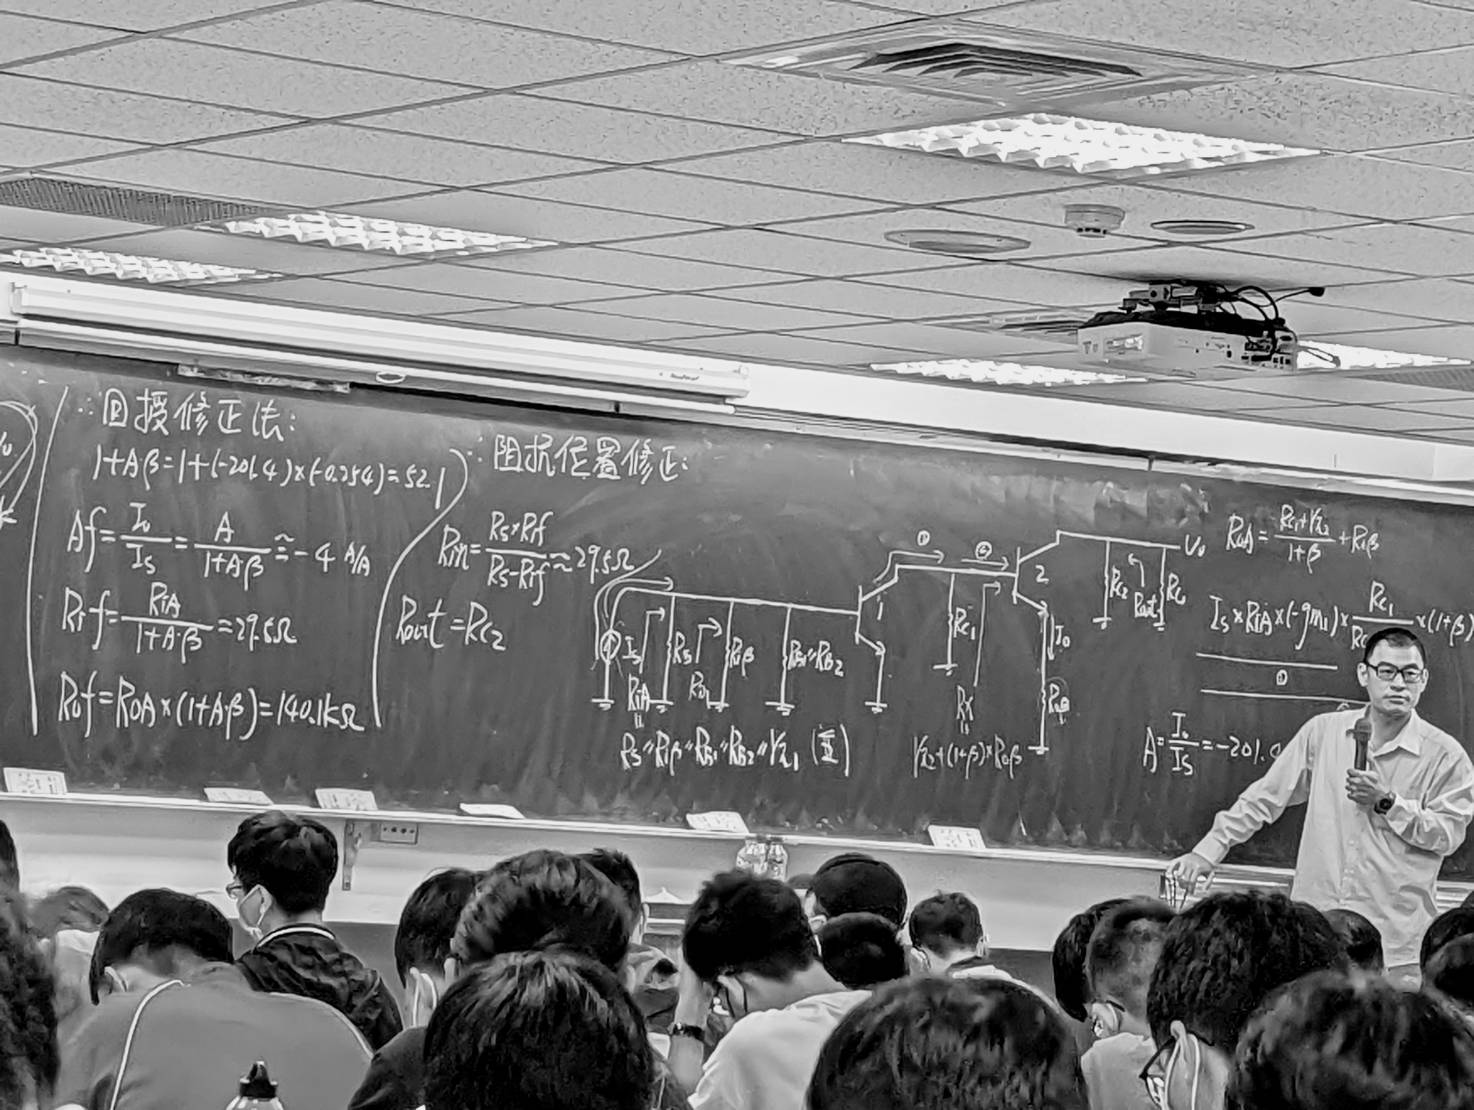 ∴回授修正法:
1+Aβ=1+(-201.4)×(-0.254)=52.1
Af=Io/Is=A/(1+Aβ)≅-4 A/A
Rif=RiA/(1+Aβ)=29.5Ω
Rof=RoA×(1+Aβ)=140.1kΩ
∴阻抗位置修正:
Rin=(Rs×Rif)/(Rs-Rif)≈29.5Ω
Rout=Rc2
Is
RiA
Rs
Rin
Riβ
RB1//RB2
1
①
Rc1
②
Rx
2
Io
Roβ
Rc2
Rout
Vo
Rs//Riβ//RB1//RB2//rπ1
rπ2+(1+β)×Roβ
RoA=(Rc1+rπ2)/(1+β)+Roβ
Is×RiA×(-gm1)×Rc1/ ×(1+β)
①
A=Io/Is=-201.